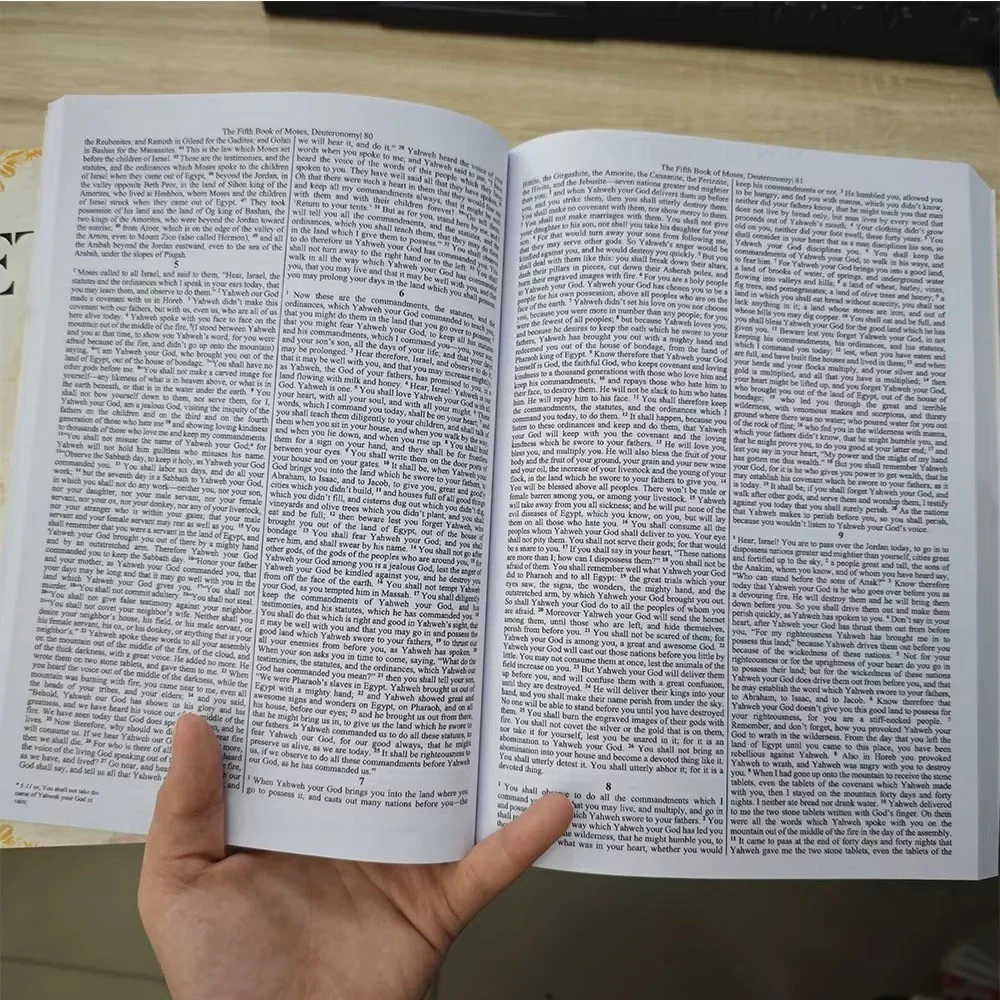 The Fifth Book of Moses, Deuteronomy| 80
the Reubenites; and Ramoth in Gilead for the Gadites; and Golan
in Bashan for the Manassites. 44 This is the law which Moses set
before the children of Israel. 45 These are the testimonies, and the
statutes, and the ordinances which Moses spoke to the children
of Israel when they came out of Egypt, 46 beyond the Jordan, in
the valley opposite Beth Peor, in the land of Sihon king of the
Amorites, who lived at Heshbon, whom Moses and the children
of Israel struck when they came out of Egypt. 47 They took
possession of his land and the land of Og king of Bashan, the
two kings of the Amorites, who were beyond the Jordan toward
the sunrise; 48 from Aroer, which is on the edge of the valley of
the Arnon, even to Mount Zion (also called Hermon), 49 and all
the Arabah beyond the Jordan eastward, even to the sea of the
Arabah, under the slopes of Pisgah.
5
1 Moses called to all Israel, and said to them, “Hear, Israel, the
statutes and the ordinances which I speak in your ears today, that
you may learn them, and observe to do them.” 2 Yahweh our God
made a covenant with us in Horeb. 3 Yahweh didn’t make this
covenant with our fathers, but with us, even us, who are all of us
here alive today. 4 Yahweh spoke with you face to face on the
mountain out of the middle of the fire, 5 (I stood between Yahweh
and you at that time, to show you Yahweh’s word; for you were
afraid because of the fire, and didn’t go up onto the mountain)
saying, 6 “I am Yahweh your God, who brought you out of the
land of Egypt, out of the house of bondage. 7 “You shall have no
other gods before me. 8 “You shall not make a carved image for
yourself—any likeness of what is in heaven above, or what is in
the earth beneath, or that is in the water under the earth. 9 You
shall not bow yourself down to them, nor serve them, for I,
Yahweh your God, am a jealous God, visiting the iniquity of the
fathers on the children and on the third and on the fourth
generation of those who hate me 10 and showing loving kindness
to thousands of those who love me and keep my commandments.
11 “You shall not misuse the name of Yahweh your God;* for
Yahweh will not hold him guiltless who misuses his name.
12 “Observe the Sabbath day, to keep it holy, as Yahweh your God
commanded you. 13 You shall labor six days, and do all your
work; 14 but the seventh day is a Sabbath to Yahweh your God,
in which you shall not do any work—neither you, nor your son,
nor your daughter, nor your male servant, nor your female
servant, nor your ox, nor your donkey, nor any of your livestock,
nor your stranger who is within your gates; that your male
servant and your female servant may rest as well as you. 15 You
shall remember that you were a servant in the land of Egypt, and
Yahweh your God brought you out of there by a mighty hand
and by an outstretched arm. Therefore Yahweh your God
commanded you to keep the Sabbath day. 16 “Honor your father
and your mother, as Yahweh your God commanded you, that
your days may be long and that it may go well with you in the
land which Yahweh your God gives you. 17 “You shall not
murder. 18 “You shall not commit adultery. 19 “You shall not steal.
20 “You shall not give false testimony against your neighbor.
21 “You shall not covet your neighbor’s wife. Neither shall you
desire your neighbor’s house, his field, or his male servant, or
his female servant, his ox, or his donkey, or anything that is your
neighbor’s.” 22 Yahweh spoke these words to all your assembly
on the mountain out of the middle of the fire, of the cloud, and
of the thick darkness, with a great voice. He added no more. He
wrote them on two stone tablets, and gave them to me. 23 When
you heard the voice out of the middle of the darkness, while the
mountain was burning with fire, you came near to me, even all
the heads of your tribes, and your elders; 24 and you said,
“Behold, Yahweh our God has shown us his glory and his
greatness, and we have heard his voice out of the middle of the
fire. We have seen today that God does speak with man, and he
lives. 25 Now therefore, why should we die? For this great fire
will consume us. If we hear Yahweh our God’s voice any more,
then we shall die. 26 For who is there of all
the voice of the living God speaking out of
as we have, and lived? 27 Go near, and hear
God shall say, and tell us all that Yahweh
* 5:11 or, You shall not take the
name of Yahweh your God in
vain;
we will hear it, and do it.” 28 Yahweh heard the voice of your
words when you spoke to me; and Yahweh said to me, “I have
heard the voice of the words of this people which they have
spoken to you. They have well said all that they have spoken. 29
Oh that there were such a heart in them that they would fear me
and keep all my commandments always, that it might be well
with them and with their children forever! 30 “Go tell them,
‘Return to your tents.’ 31 But as for you, stand here by me, and I
will tell you all the commandments, and the statutes, and the
ordinances, which you shall teach them, that they may do them
in the land which I give them to possess.” 32 You shall observe
to do therefore as Yahweh your God has commanded you. You
shall not turn away to the right hand or to the left. 33 You shall
walk in all the way which Yahweh your God has commanded
you, that you may live and that it may be well with you, and that
you may prolong your days in the land which you shall possess.
6
1 Now these are the commandments, the statutes, and the
ordinances, which Yahweh your God commanded to teach you,
that you might do them in the land that you go over to possess;
2 that you might fear Yahweh your God, to keep all his statutes
and his commandments, which I command you—you, your son,
and your son’s son, all the days of your life; and that your days
may be prolonged. 3 Hear therefore, Israel, and observe to do it,
that it may be well with you, and that you may increase mightily,
as Yahweh, the God of your fathers, has promised to you, in a
land flowing with milk and honey. 4 Hear, Israel: Yahweh is our
God. Yahweh is one. 5 You shall love Yahweh your God with all
your heart, with all your soul, and with all your might. 6 These
words, which I command you today, shall be on your heart; 7 and
you shall teach them diligently to your children, and shall talk of
them when you sit in your house, and when you walk by the way,
and when you lie down, and when you rise up. 8 You shall bind
them for a sign on your hand, and they shall be for frontlets
between your eyes. 9 You shall write them on the door posts of
your house and on your gates. 10 It shall be, when Yahweh your
God brings you into the land which he swore to your fathers, to
Abraham, to Isaac, and to Jacob, to give you, great and goodly
cities which you didn’t build, 11 and houses full of all good things
which you didn’t fill, and cisterns dug out which you didn’t dig,
vineyards and olive trees which you didn’t plant, and you shall
eat and be full; 12 then beware lest you forget Yahweh, who
brought you out of the land of Egypt, out of the house of
bondage. 13 You shall fear Yahweh your God; and you shall
serve him, and shall swear by his name. 14 You shall not go after
other gods, of the gods of the peoples who are around you, 15 for
Yahweh your God among you is a jealous God, lest the anger of
Yahweh your God be kindled against you, and he destroy you
from off the face of the earth. 16 You shall not tempt Yahweh
your God, as you tempted him in Massah. 17 You shall diligently
keep the commandments of Yahweh your God, and his
testimonies, and his statutes, which he has commanded you. 18
You shall do that which is right and good in Yahweh’s sight, that
it may be well with you and that you may go in and possess the
good land which Yahweh swore to your fathers, 19 to thrust out
all your enemies from before you, as Yahweh has spoken. 20
When your son asks you in time to come, saying, “What do the
testimonies, the statutes, and the ordinances, which Yahweh our
God has commanded you mean?” 21 then you shall tell your son,
“We were Pharaoh’s slaves in Egypt. Yahweh brought us out of
Egypt with a mighty hand; 22 and Yahweh showed great and
awesome signs and wonders on Egypt, on Pharaoh, and on all
his house, before our eyes; 23 and he brought us out from there,
that he might bring us in, to give us the land which he swore to
our fathers. 24 Yahweh commanded us to do all these statutes, to
fear Yahweh our God, for our good always, that he might
preserve us alive, as we are today. 25 It shall be righteousness to
us, if we observe to do all these commandments before Yahweh
our God, as he has commanded us.”
7
1 When Yahweh your God brings you into the land where you
go to possess it, and casts out many nations before you—the
The Fifth Book of Moses, Deuteronomy| 81
Hittite, the Girgashite, the Amorite, the Canaanite, the Perizzite,
the Hivite, and the Jebusite—seven nations greater and mightier
than you; 2 and when Yahweh your God delivers them up before
you, and you strike them, then you shall utterly destroy them.
You shall make no covenant with them, nor show mercy to them.
3 You shall not make marriages with them. You shall not give
your daughter to his son, nor shall you take his daughter for your
son. 4 For that would turn away your sons from following me,
that they may serve other gods. So Yahweh’s anger would be
kindled against you, and he would destroy you quickly. 5 But you
shall deal with them like this: you shall break down their altars,
dash their pillars in pieces, cut down their Asherah poles, and
burn their engraved images with fire. 6 For you are a holy people
to Yahweh your God. Yahweh your God has chosen you to be a
people for his own possession, above all peoples who are on the
face of the earth. 7 Yahweh didn’t set his love on you nor choose
you, because you were more in number than any people; for you
were the fewest of all peoples; 8 but because Yahweh loves you,
and because he desires to keep the oath which he swore to your
fathers, Yahweh has brought you out with a mighty hand and
redeemed you out of the house of bondage, from the hand of
Pharaoh king of Egypt. 9 Know therefore that Yahweh your God
himself is God, the faithful God, who keeps covenant and loving
kindness to a thousand generations with those who love him and
keep his commandments, 10 and repays those who hate him to
their face, to destroy them. He will not be slack to him who hates
him. He will repay him to his face. 11 You shall therefore keep
the commandments, the statutes, and the ordinances which I
command you today, to do them. 12 It shall happen, because you
listen to these ordinances and keep and do them, that Yahweh
your God will keep with you the covenant and the loving
kindness which he swore to your fathers. 13 He will love you,
bless you, and multiply you. He will also bless the fruit of your
body and the fruit of your ground, your grain and your new wine
and your oil, the increase of your livestock and the young of your
flock, in the land which he swore to your fathers to give you. 14
You will be blessed above all peoples. There won’t be male or
female barren among you, or among your livestock. 15 Yahweh
will take away from you all sickness; and he will put none of the
evil diseases of Egypt, which you know, on you, but will lay
them on all those who hate you. 16 You shall consume all the
peoples whom Yahweh your God shall deliver to you. Your eye
shall not pity them. You shall not serve their gods; for that would
be a snare to you. 17 If you shall say in your heart, “These nations
are more than I; how can I dispossess them?” 18 you shall not be
afraid of them. You shall remember well what Yahweh your God
did to Pharaoh and to all Egypt: 19 the great trials which your
eyes saw, the signs, the wonders, the mighty hand, and the
outstretched arm, by which Yahweh your God brought you out.
So shall Yahweh your God do to all the peoples of whom you
are afraid. 20 Moreover Yahweh your God will send the hornet
among them, until those who are left, and hide themselves,
perish from before you. 21 You shall not be scared of them; for
Yahweh your God is among you, a great and awesome God. 22
Yahweh your God will cast out those nations before you little by
little. You may not consume them at once, lest the animals of the
field increase on you. 23 But Yahweh your God will deliver them
up before you, and will confuse them with a great confusion,
until they are destroyed. 24 He will deliver their kings into your
hand, and you shall make their name perish from under the sky.
No one will be able to stand before you until you have destroyed
them. 25 You shall burn the engraved images of their gods with
fire. You shall not covet the silver or the gold that is on them,
nor take it for yourself, lest you be snared in it; for it is an
abomination to Yahweh your God. 26 You shall not bring an
abomination into your house and become a devoted thing like it.
You shall utterly detest it. You shall utterly abhor it; for it is a
devoted thing.
8
1 You shall observe to do all the commandments which I
command you may live, and multiply, and go in
and possess which Yahweh swore to your fathers. 2 You
shall way which Yahweh your God has led you
wilderness, that he might humble you, to
what was in your heart, whether you would
keep his commandments or not. 3 He humbled you, allowed you
to be hungry, and fed you with manna, which you didn’t know,
neither did your fathers know, that he might teach you that man
does not live by bread only, but man lives by every word that
proceeds out of Yahweh’s mouth. 4 Your clothing didn’t grow
old on you, neither did your foot swell, these forty years. 5 You
shall consider in your heart that as a man disciplines his son, so
Yahweh your God disciplines you. 6 You shall keep the
commandments of Yahweh your God, to walk in his ways, and
to fear him. 7 For Yahweh your God brings you into a good land,
a land of brooks of water, of springs, and underground water
flowing into valleys and hills; 8 a land of wheat, barley, vines,
fig trees, and pomegranates; a land of olive trees and honey; 9 a
land in which you shall eat bread without scarcity, you shall not
lack anything in it; a land whose stones are iron, and out of
whose hills you may dig copper. 10 You shall eat and be full, and
you shall bless Yahweh your God for the good land which he has
given you. 11 Beware lest you forget Yahweh your God, in not
keeping his commandments, his ordinances, and his statutes,
which I command you today; 12 lest, when you have eaten and
are full, and have built fine houses and lived in them; 13 and when
your herds and your flocks multiply, and your silver and your
gold is multiplied, and all that you have is multiplied; 14 then
your heart might be lifted up, and you forget Yahweh your God,
who brought you out of the land of Egypt, out of the house of
bondage; 15 who led you through the great and terrible
wilderness, with venomous snakes and scorpions, and thirsty
ground where there was no water; who poured water for you out
of the rock of flint; 16 who fed you in the wilderness with manna,
which your fathers didn’t know, that he might humble you, and
that he might prove you, to do you good at your latter end; 17 and
lest you say in your heart, “My power and the might of my hand
has gotten me this wealth.” 18 But you shall remember Yahweh
your God, for it is he who gives you power to get wealth, that he
may establish his covenant which he swore to your fathers, as it
is today. 19 It shall be, if you shall forget Yahweh your God, and
walk after other gods, and serve them and worship them, I testify
against you today that you shall surely perish. 20 As the nations
that Yahweh makes to perish before you, so you shall perish,
because you wouldn’t listen to Yahweh your God’s voice.
9
1 Hear, Israel! You are to pass over the Jordan today, to go in to
dispossess nations greater and mightier than yourself, cities great
and fortified up to the sky, 2 a people great and tall, the sons of
the Anakim, whom you know, and of whom you have heard say,
“Who can stand before the sons of Anak?” 3 Know therefore
today that Yahweh your God is he who goes over before you as
a devouring fire. He will destroy them and he will bring them
down before you. So you shall drive them out and make them
perish quickly, as Yahweh has spoken to you. 4 Don’t say in your
heart, after Yahweh your God has thrust them out from before
you, “For my righteousness Yahweh has brought me in to
possess this land;” because Yahweh drives them out before you
because of the wickedness of these nations. 5 Not for your
righteousness or for the uprightness of your heart do you go in
to possess their land; but for the wickedness of these nations
Yahweh your God does drive them out from before you, and that
he may establish the word which Yahweh swore to your fathers,
to Abraham, to Isaac, and to Jacob. 6 Know therefore that
Yahweh your God doesn’t give you this good land to possess for
your righteousness, for you are a stiff-necked people. 7
Remember, and don’t forget, how you provoked Yahweh your
God to wrath in the wilderness. From the day that you left the
land of Egypt until you came to this place, you have been
rebellious against Yahweh. 8 Also in Horeb you provoked
Yahweh to wrath, and Yahweh was angry with you to destroy
you. 9 When I had gone up onto the mountain to receive the stone
tablets, even the tablets of the covenant which Yahweh made
with you, then I stayed on the mountain forty days and forty
nights. I neither ate bread nor drank water. 10 Yahweh delivered
to me the two stone tablets written with God’s finger. On them
were all the words which Yahweh spoke with you on the
mountain out of the middle of the fire in the day of the assembly.
11 It came to pass at the end of forty days and forty nights that
Yahweh gave me the two stone tablets, even the tablets of the